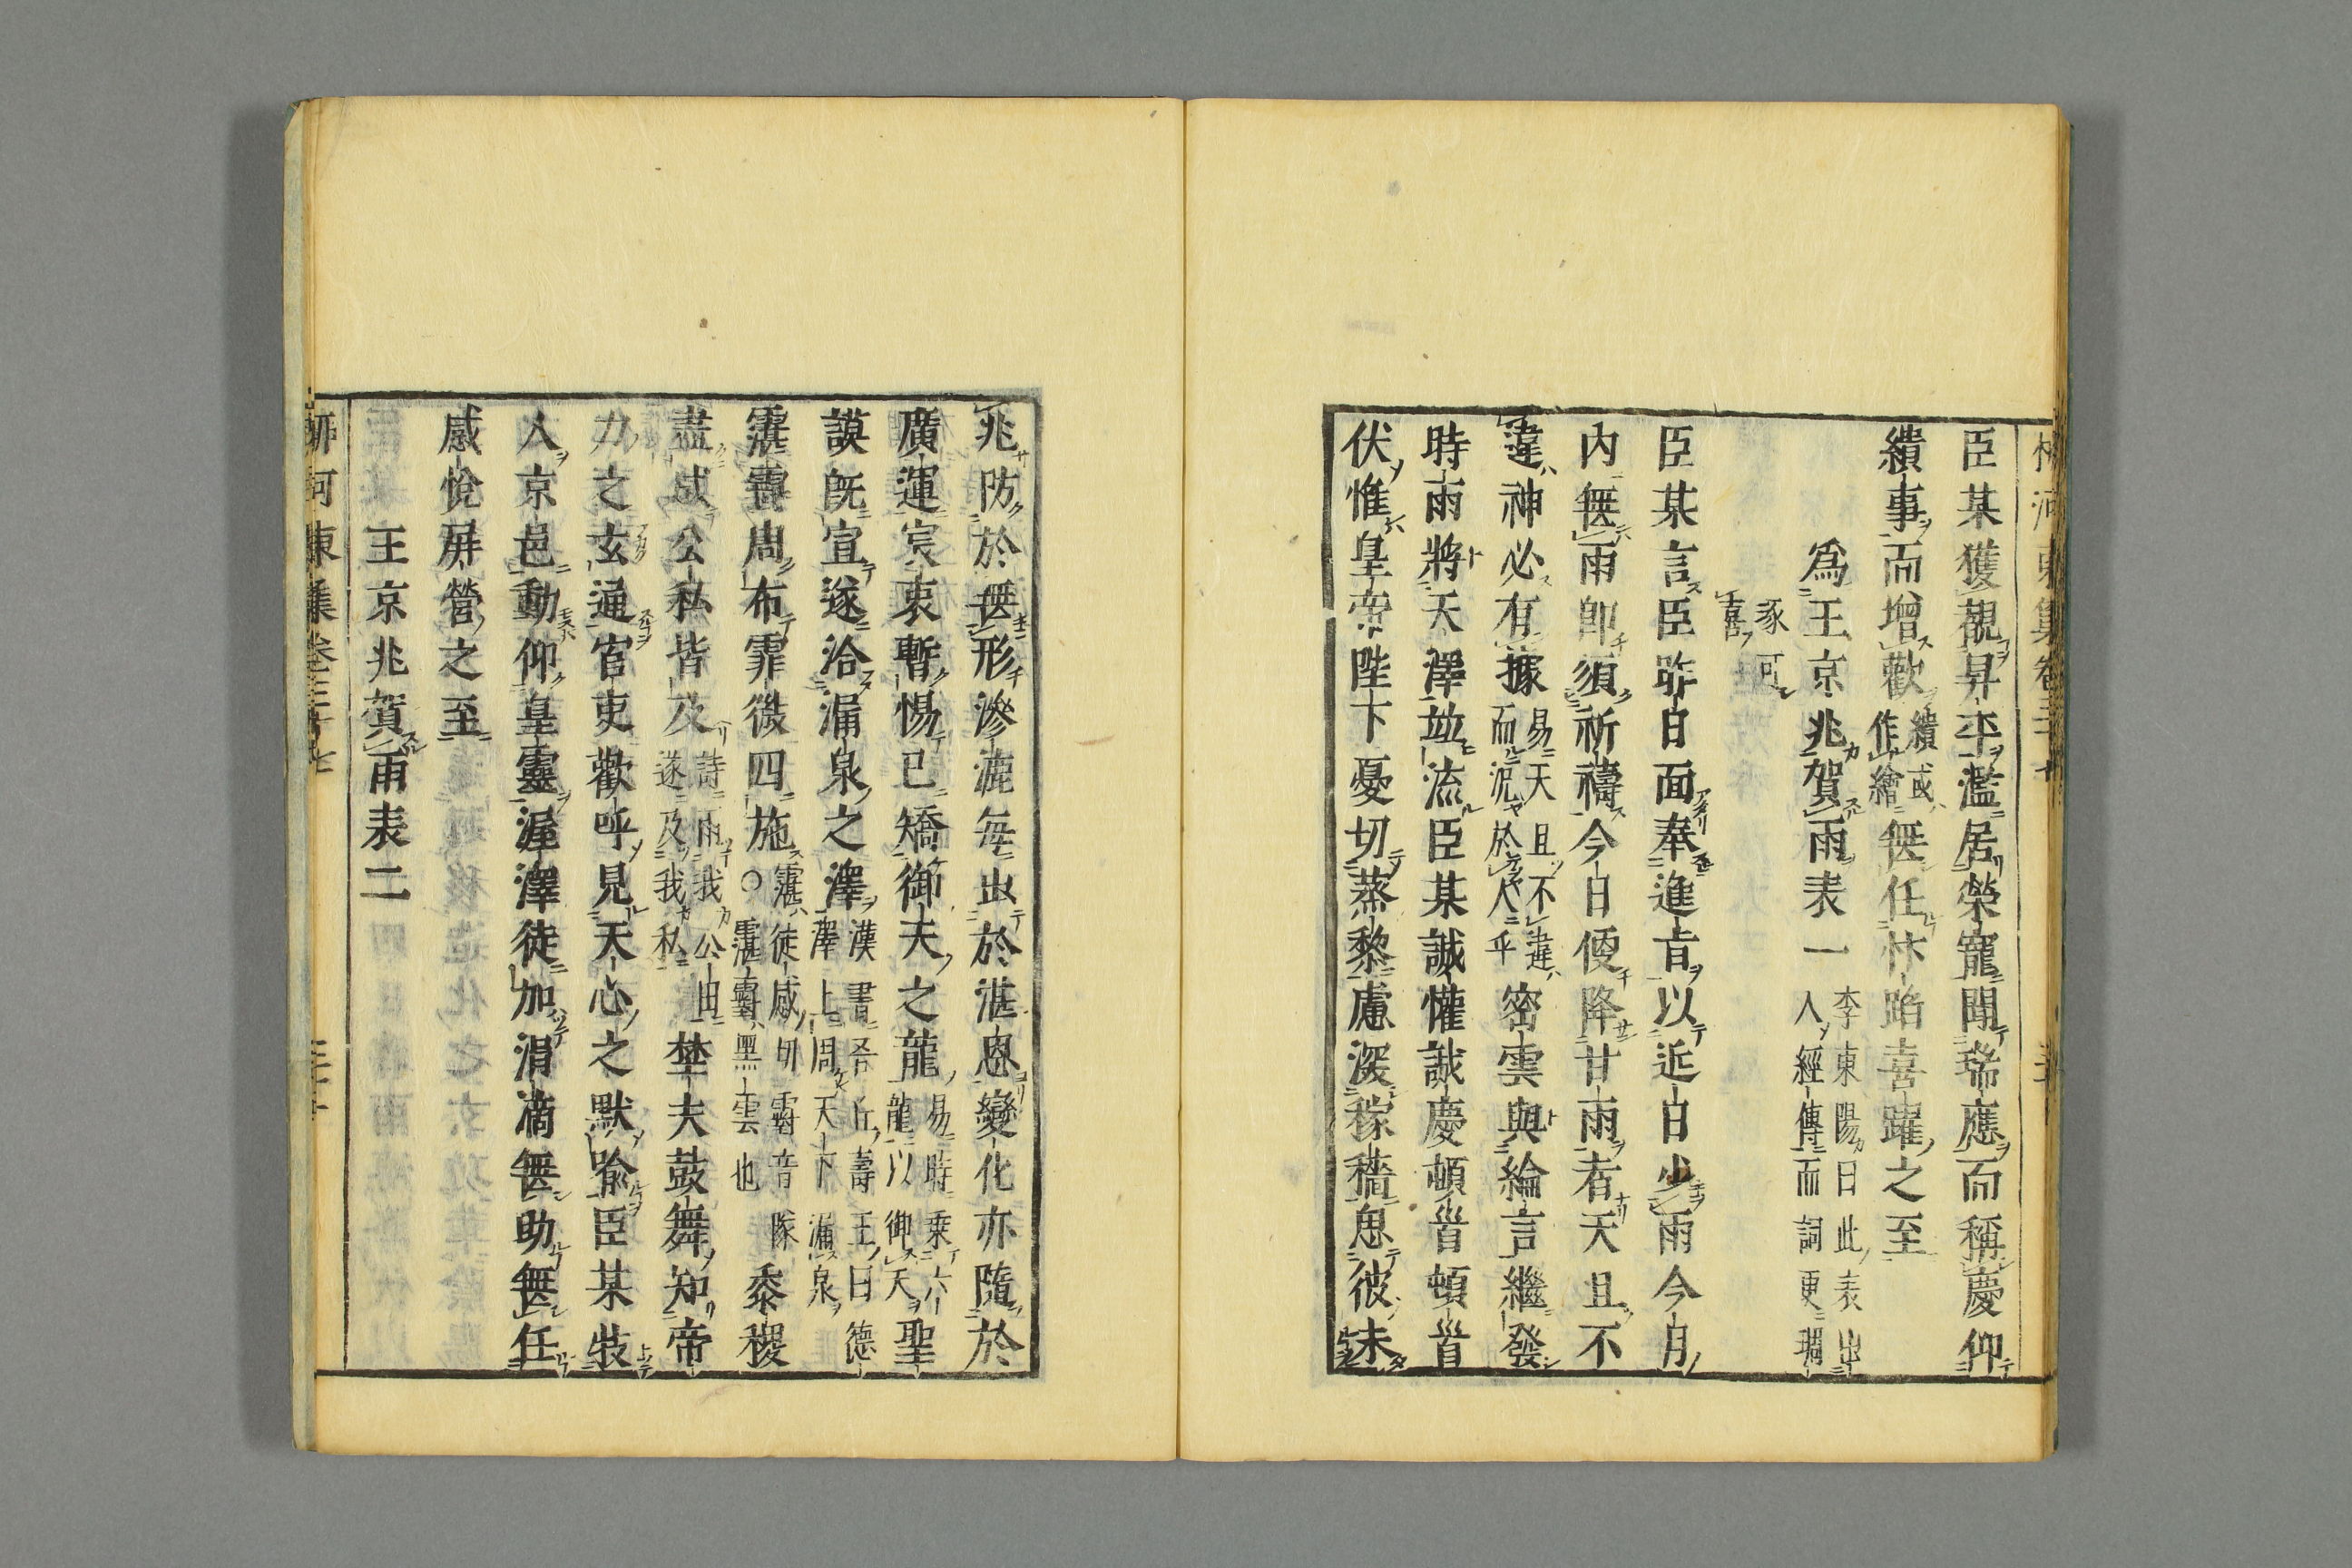 臣某獲覩昇平濫居榮寵聞瑞應而稱慶仰
繢事而增歡繢或作繪無任忭蹈喜躍之至
爲王京兆賀雨表一李東陽曰此表出入經傳而詞更琱
琢可喜
臣某言臣昨日面奉進旨以近日少雨今月
内無雨即須祈禱今日便降甘雨者天且不
違神必有據易天且不違而況於人乎密雲與綸言繼發
時雨將天澤竝流臣某誠懽誠慶頓首頓首
伏惟皇帝陛下憂切蒸黎慮深稼穡息彼未
兆防於無形滲漉每出於湛恩變化亦隨於
廣運宸衷暫惕已矯御天之龍易時乘六龍以御天聖
謨既宣遂洽漏泉之澤漢書吾丘壽王曰德澤上周天下漏泉
霮䨴周布霏微四施霮徒感切䨴音隊○霮䨴黑雲也黍稷
盡成公私皆及詩雨我公田遂及我私埜夫鼓舞知帝
力之玄通官吏歡呼見天心之默喻臣某牧
人京邑動仰皇靈渥澤徒加涓滴無助無任
感悅屏營之至
王京兆賀雨表二
柳河東集卷三十七